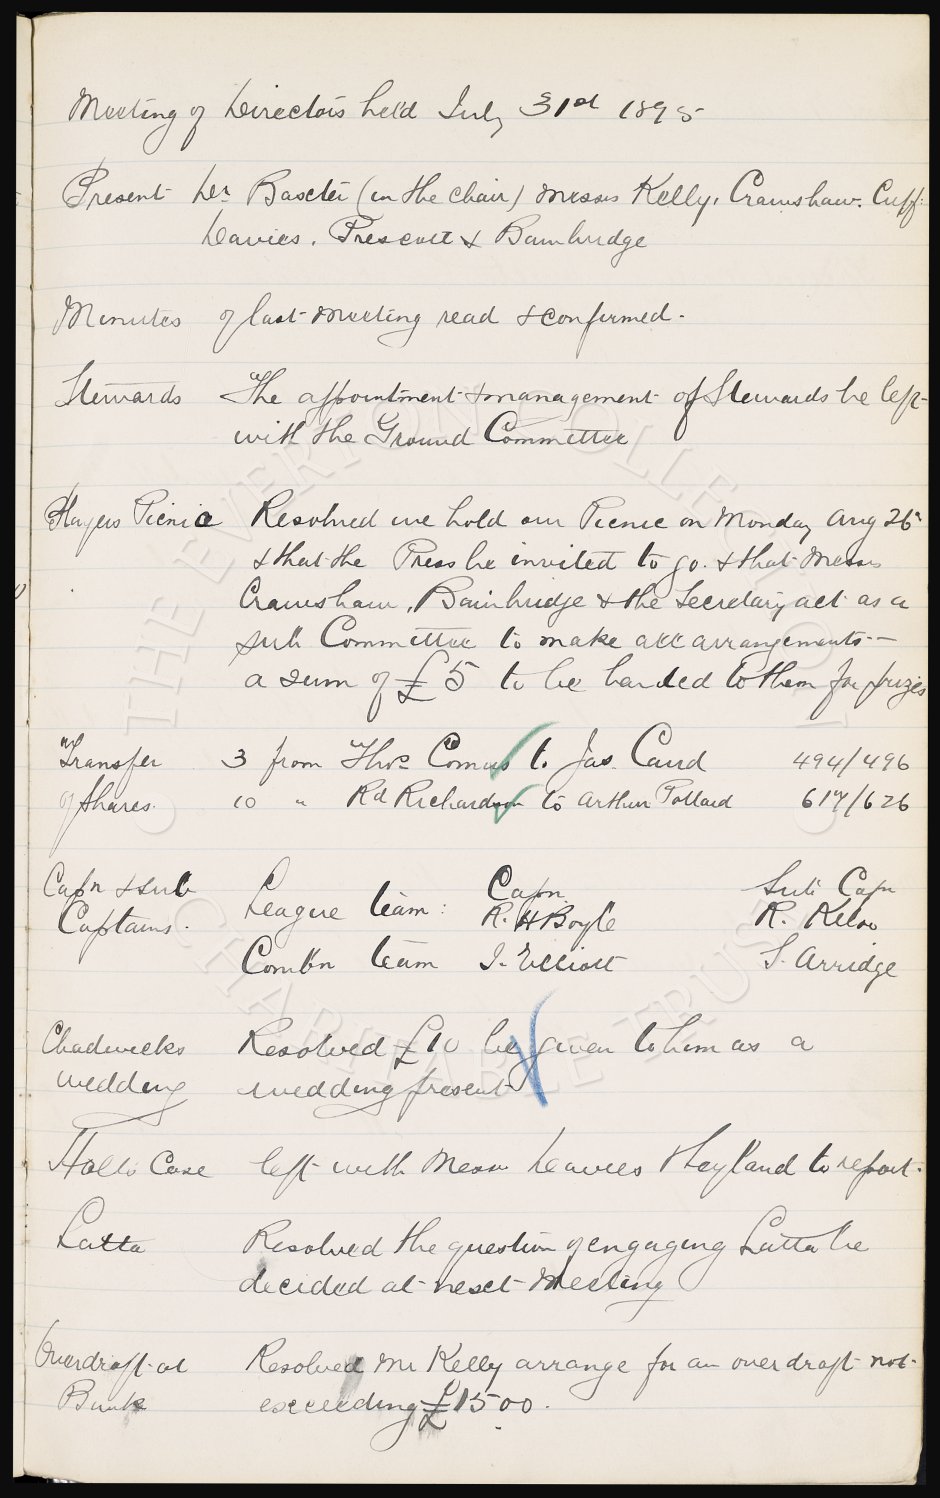 Meeting of Directors held July 31st 1895
Present Dr Baxter (in the chair) Messrs Kelly, Cramshaw. Cuff.
Davies. Prescott & Bainbridge
Minutes of last Meeting read & confirmed.
Stewards The appointment & management of Stewards be left
with the Ground Committee
Players Picnic Resolved we hold our Picnic on Monday Aug 26
& that the Press be invited to go. & that Messrs
Cramshaw, Bainbridge & the Secretary act as a
sub Committee to make all arrangements —
a sum of £5 to be handed to them for prizes
Transfer 3 from Thos to Jas. Caird 494/496
of Shares. 10 " Rd Richardson to Arthur Pollard 617/626
Capn & sub Capn Sub Capn
Captains. League team: R. H Boyle R. Kelso
Combn team J. Elliott S. Arridge
Chadwicks Resolved £10 be given to him as a
wedding wedding present
Halls Case left with Messrs Davies & Leyland to report.
Latta Resolved the question of engaging Latta be
decided at next Meeting
Overdraft at Resolved Mr Kelly arrange for an overdraft not
Bank exceeding £1500.
THE EVERTON COLLECTION
CHARITABLE TRUST